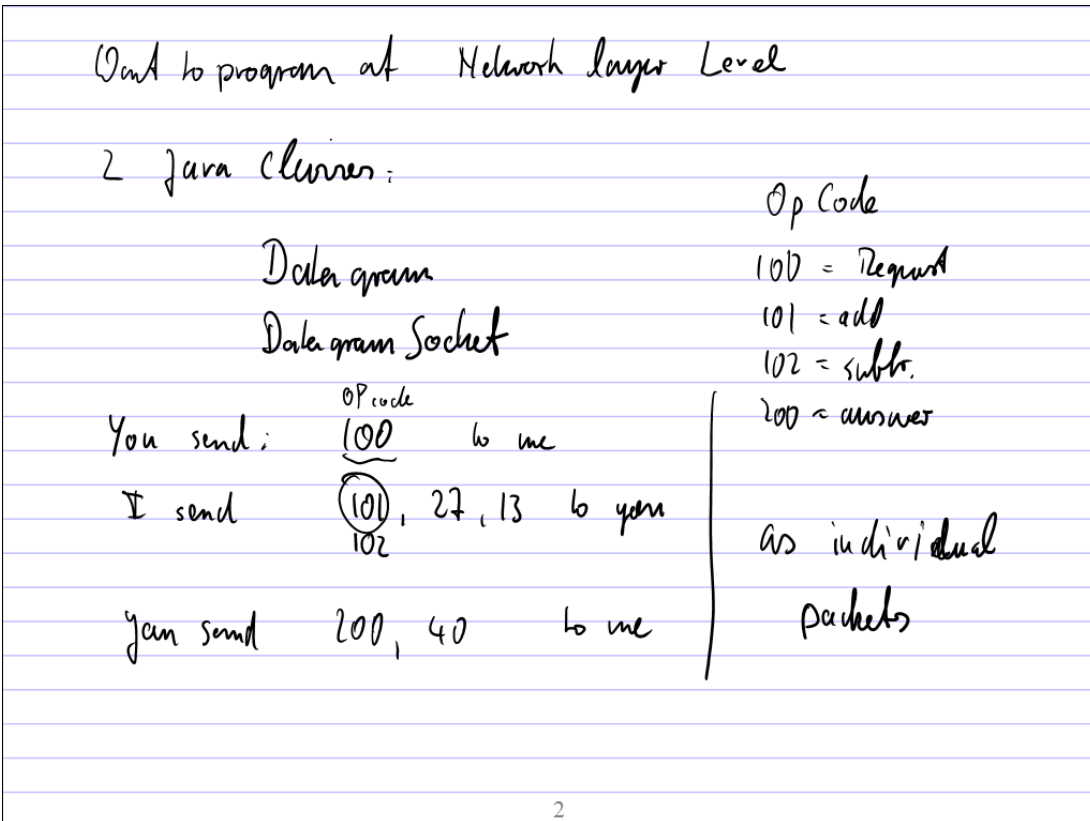 Want to program at Network layer Level
2 Java Classes:
Datagram
Datagram Socket
Op Code
100 = Request
101 = add
102 = subtr.
200 = answer
OP code
You send: 100 to me
I send 101, 27, 13 to you
102
You send 200, 40 to me
as individual
packets
2